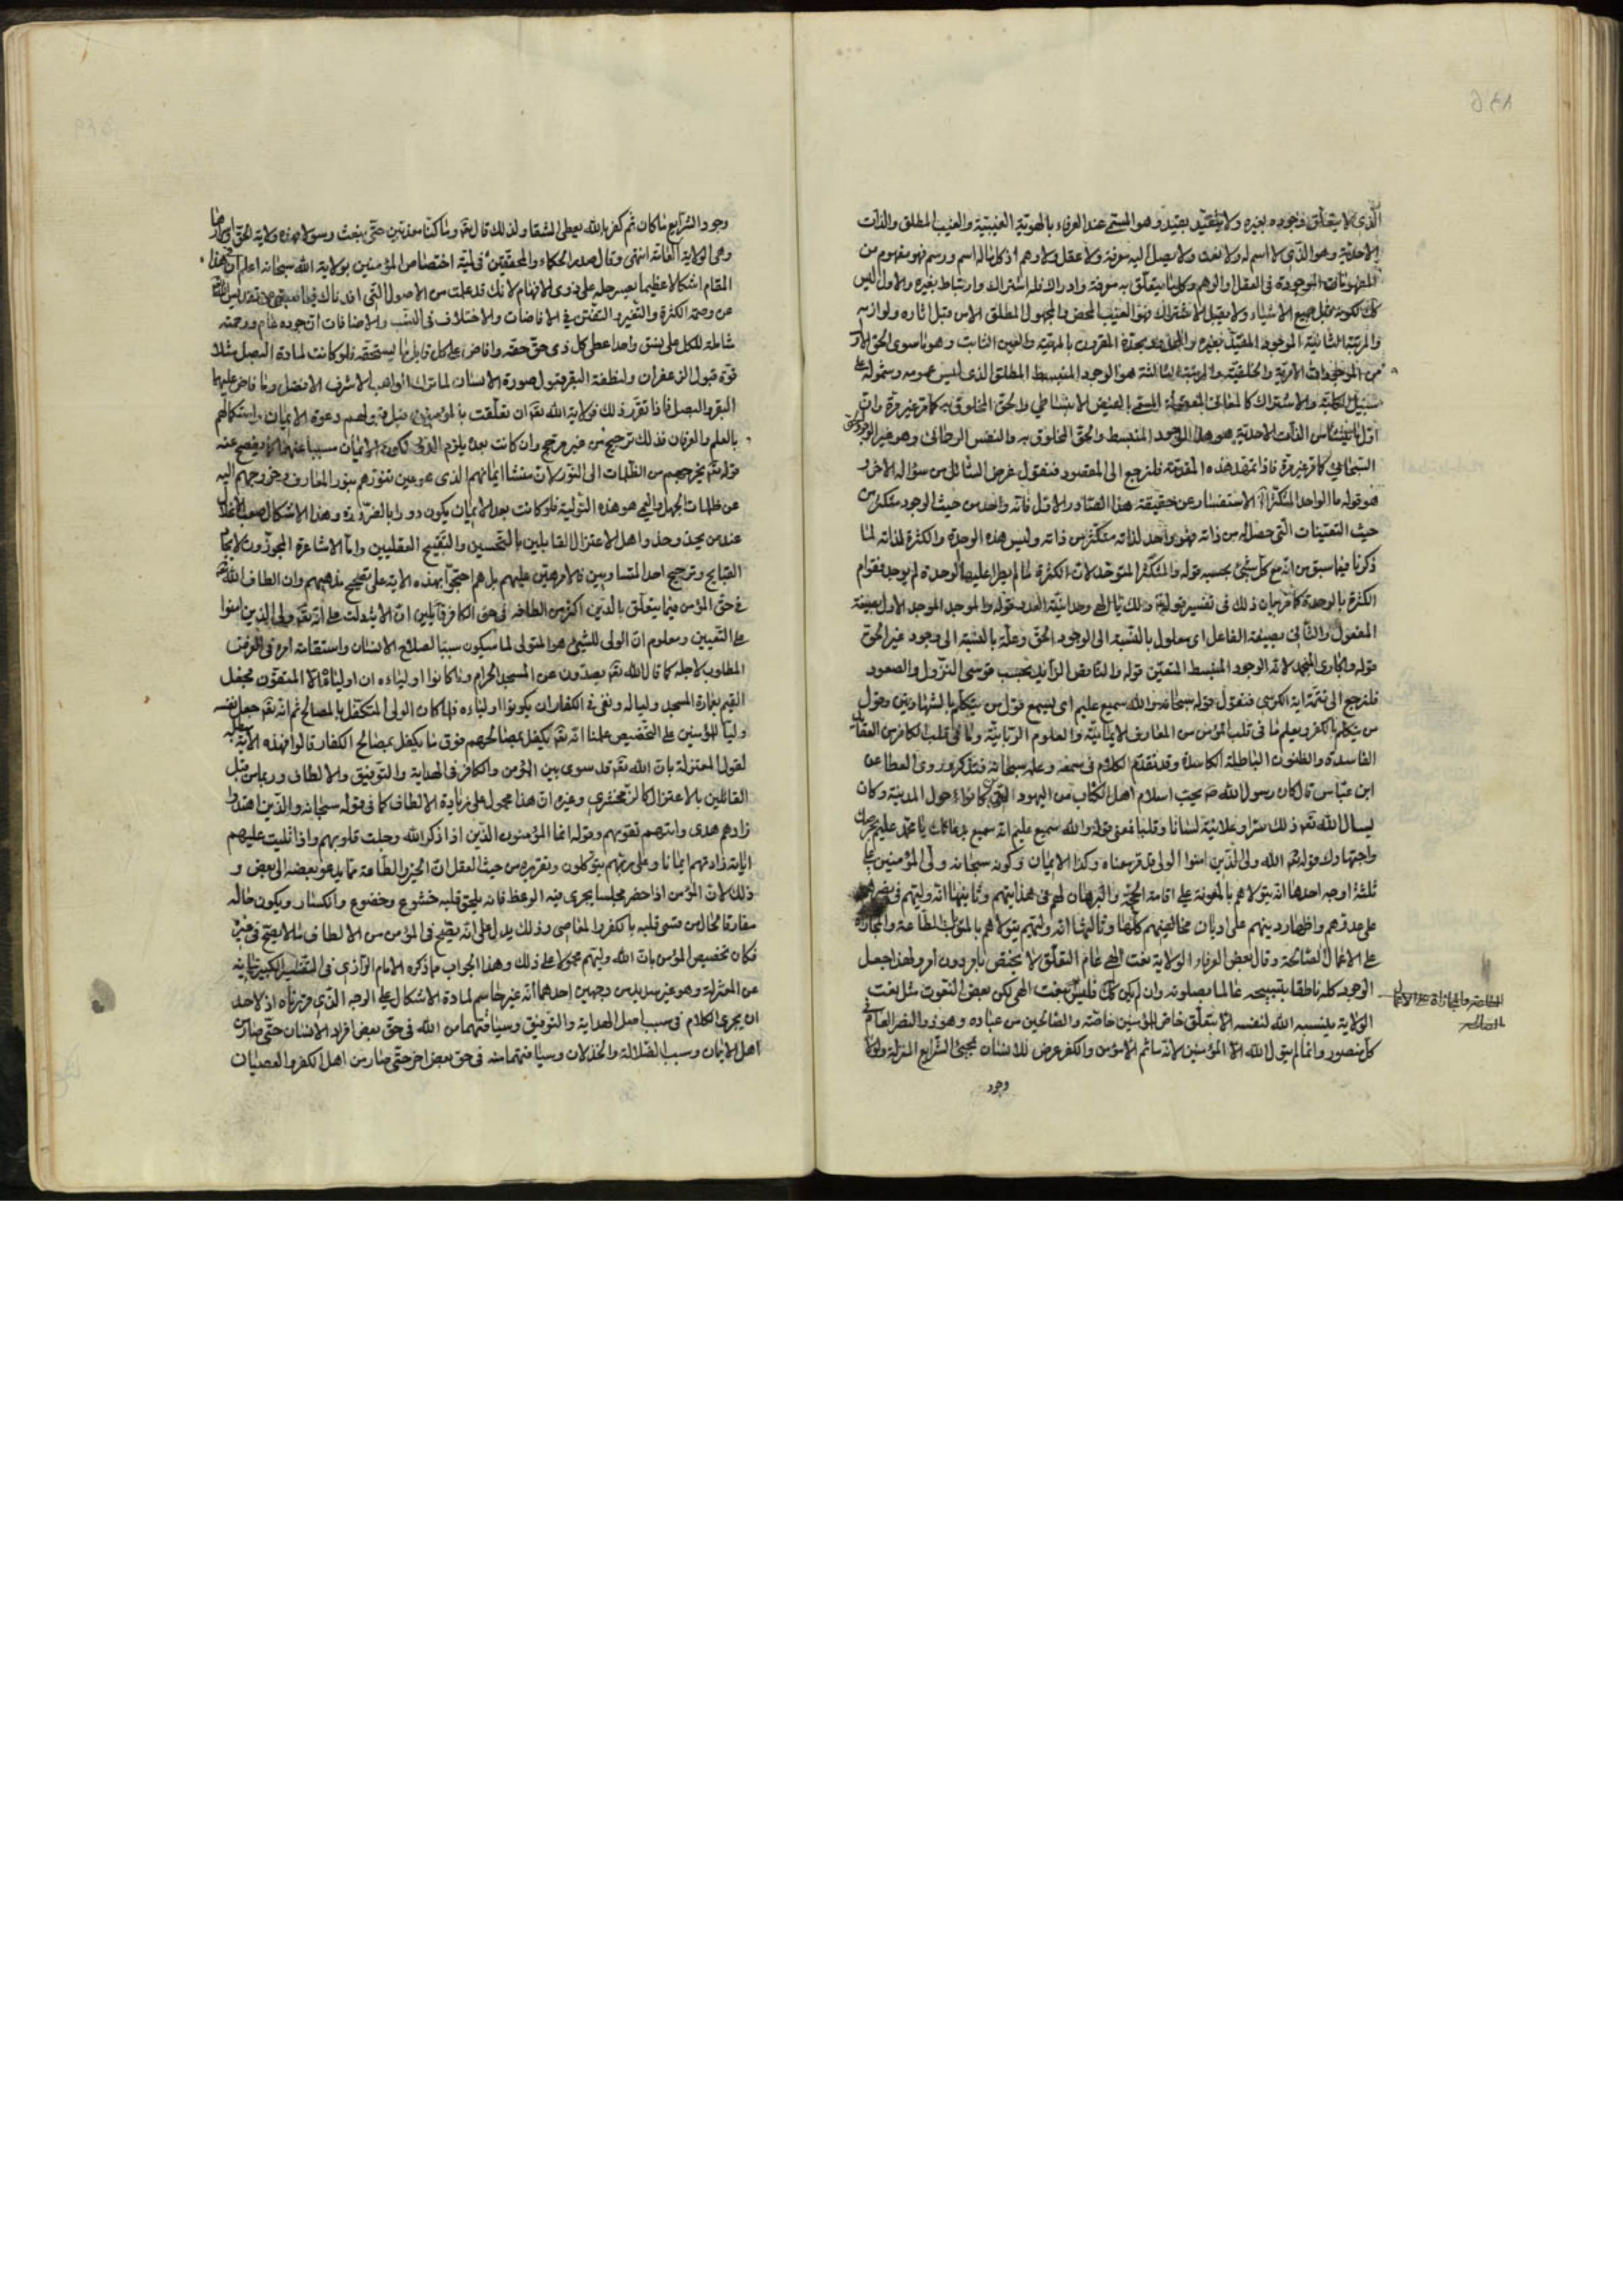 الذی لا یتعلق وجوده بغیره ولا یتقید بقید وهو المسمی عند العرفاء بالهویة الغیبیة والغیب المطلق والذات
الاحدیة وهو الذی لا اسم له ولا نعت ولا یصل الیه معرفة ولا عقل ولا وهم اذ کل ما له اسم ورسم فهو مفهوم من
المفهومات الموجودة فی العقل او الوهم وکل ما یتعلق به معرفة وادراک فله اشتراک وارتباط بغیره والاول لیس
کک لکونه قبل جمیع الاشیاء ولا یقبل الاشتراک فهو الغیب المحض والمجهول المطلق الا من قبل اثاره ولوازمه
والمرتبة الثانیة الموجود المقید بغیره المقرون بالمهیة والعین الثابت وهو ما سوی الحق الاول
من الموجودات الامریة والخلقیة والمرتبة الثالثة هو الوجود المنبسط المطلق الذی لیس عمومه وشموله علی
سبیل الکلیة والاشتراک کالمعانی المعقولة المسمی بالفیض الانبساطی والحق المخلوق به کما مر غیر مرة وان
اول ما ینشأ من الذات الاحدیة هو هذا الوجود المنبسط والحق المخلوق به والنفس الرحمانی وهو غیر الوجود
کما مر غیر مرة فاذا تمهد هذه المقدمة فلنرجع الی المقصود فنقول غرض السائل من سؤاله الاخر
هو قوله ما الواحد المتکثر الاستفسار عن حقیقة هذا الصادر الاول فانه واحد من حیث الوجود متکثر من
حیث التعینات التی حصل له من ذاته فهو واحد لذاته متکثر من ذاته ولیس هذه الوحدة والکثرة لذاته لما
ذکرنا فیما سبق من انه مع کل شیء بحسبه قوله والمتکثر المتوحد لان الکثرة لما لم یطرأ علیها الوحدة لم یوجد فقوام
الکثرة بالوحدة کما مر بیان ذلک فی تفسیر قوله لک یا الهی وحدانیة العدد قوله والموجد الموجد الاول بصیغة
المفعول والثانی بصیغة الفاعل ای معلول بالنسبة الی الوجود الحق وعلة بالنسبة الی وجود غیر الحق
قوله والجاری المنجمد لانه الوجود المنبسط المتعین قوله والناقص الزاید بحسب قوسی النزول والصعود
فلنرجع الی تتمة ایة الکرسی فنقول قوله سبحانه والله سمیع علیم ای یسمع قول من یتکلم بالشهادتین وقول
من یتکلم بالکفر ویعلم ما فی قلب المؤمن من المعارف الایمانیة والعلوم الربانیة وما فی قلب الکافر من العقاید
الفاسدة والظنون الباطلة الکاسدة وقد تقدم الکلام فی سمعه وعلمه سبحانه فتذکر وروی العطا عن
ابن عباس قال کان رسول الله صم یحب اسلام اهل الکتاب من الیهود کانوا حول المدینة وکان
یسال الله تعم ذلک سرا وعلانیة لسانا وقلبا فمعنی قوله والله سمیع علیم انه سمیع بدعائک یا محمد علیم بحرصک
واجتهادک قوله تعم الله ولی الذین امنوا الولی قد مر معناه وکذا الایمان وکونه سبحانه ولی المؤمنین علی
ثلثة اوجه احدها انه یتولاهم بالمعونة علی اقامة الحجة والبرهان لهم فی هدایتهم وثانیها انه ولیهم فی نصرهم
علی عدوهم واظهار دینهم علی ادیان مخالفیهم کلها وثالثها انه ولیهم یتولاهم بالمثوبة بالطاعة والمجازاة
علی الاعمال الصالحة وقال بعض العرفاء الولایة نعت الهی عام التعلق لا یختص بامر دون امر ولهذا جعل
الوجود کله ناطقا بتسبیحه عالما بصلوته وان لم یکن کک فلیس بنعت الهی لکن بعض النعوت مثل نعت
الولایة ینسبه الله لنفسه الا بتعلق خاص للمؤمنین خاصة والصالحین من عباده وهو ذو النصر العام فی
کل منصور وانما لم یتول الله الا المؤمنین لانه ما ثم الا مؤمن والکفر عرض للانسان بمجیئ الشرایع المنزلة ولولا
وجود
وجود الشرایع ما کان ثم کفر بالله یعطی الشقاء ولذلک قال تعم وما کنا معذبین حتی نبعث رسولا هذه ولایة الحق
وهی الولایة العامة انتهی وقال صدر الحکماء والمحققین فی لمیة اختصاص المؤمنین بولایة الله سبحانه اعلم ان فی هذا
المقام اشکالا عظیما یعسر حله علی ذوی الافهام لانک قد علمت من الاصول التی افدناک فیما سبق
عن وصمة الکثرة والتغیر فی الافاضات والاختلاف فی النسب والاضافات ان جوده عام ورحمته
شاملة للکل علی نسق واحد اعطی کل ذی حق حقه وافاض علی کل قابل ما یستحقه فلو کانت لمادة البصل مثلا
قوة قبول الزعفران ولنطفة البقر قبول صورة الانسان لما ترک الواهب الاشرف الافضل وما فاض علیهما
البقر والبصل فاذا تقرر ذلک فولایة الله تعم ان تعلقت بالمؤمنین قبل دعوة الایمان واستکمالهم
بالعلم والعرفان فذلک ترجیح من غیر مرجح وان کانت بعده یلزم الدور لکون الایمان سببا عنها کما یفصح عنه
قوله تعم یخرجهم من الظلمات الی النور لان منشا ایمانهم الذی هو عین تنورهم بنور المعارف وخروجهم الیه
عن ظلمات الجهل والعمی هو هذه التولیة فلو کانت بعد الایمان یکون دورا بالضرورة وهذا الاشکال صعب الانحلال
عند من یحذو حذو اهل الاعتزال القایلین بالتحسین والتقبیح العقلیین واما الاشاعرة المجوزون لایجاد
القبایح وترجیح احد المتساویین فالامر هین علیهم بل هم احتجوا بهذه الایة علی تصحیح مذهبهم وان الطاف الله
فی حق المؤمن فیما یتعلق بالدین اکثر من الطافه فی حق الکافر قایلین ان الایة دلت علی انه تعم ولی الذین امنوا
علی التعیین ومعلوم ان الولی للشیء هو المتولی لما یکون سببا لصلاح الانسان واستقامة امره فی الغرض
المطلوب لاجله کما قال الله تعم یصدون عن المسجد الحرام وما کانوا اولیاءه ان اولیاؤه الا المتقون فجعل
القیم بعمارة المسجد ولیا له ونفی فی الکفار ان یکونوا اولیاءه فلما کان الولی المتکفل بالمصالح ثم انه تعم جعل نفسه
ولیا للمؤمنین علی التخصیص علمنا انه تعم یکفل بمصالحهم فوق ما یکفل بمصالح الکفار قالوا فهذه الایة مبطلة
لقول المعتزلة بان الله تعم قد سوی بین المؤمن والکافر فی الهدایة والتوفیق والالطاف وربما من قبل
القائلین بالاعتزال کالزمخشری وغیره ان هذا محمول علی زیادة الالطاف کما فی قوله سبحانه والذین اهتدوا
زادهم هدی واتیهم تقویهم وقوله انما المؤمنون الذین اذا ذکر الله وجلت قلوبهم واذا تلیت علیهم
ایاته زادتهم ایمانا وعلی ربهم یتوکلون وتقریره من حیث العقل ان الخیر والطاعة مما یدعو بعضه الی بعض و
ذلک لان المؤمن اذا حضر مجلسا یجری فیه الوعظ فانه یلحق قلبه خشوع وخضوع وانکسار ویکون حاله
مفارقا لحال من قسی قلبه بالکفر والمعاصی وذلک یدل علی انه یصح فی المؤمن من الالطاف ما لا یصح فی غیره
فکان تخصیص المؤمن بان الله ولیهم محمولا علی ذلک وهذا الجواب ما ذکره الامام الرازی فی التفسیر الکبیر نیابة
عن المعتزلة وهو غیر سدید من وجهین احدهما انه غیر حاسم لمادة الاشکال علی الوجه الذی قررناه اذ لاحد
ان یجری الکلام فی سبب اصل الهدایة والتوفیق وسیاقتهما من الله فی حق بعض افراد الانسان حتی صار من
اهل الایمان وسبب الضلالة والخذلان وسیاقتهما منه فی حق بعض اخر حتی صار من اهل الکفر والعصیان